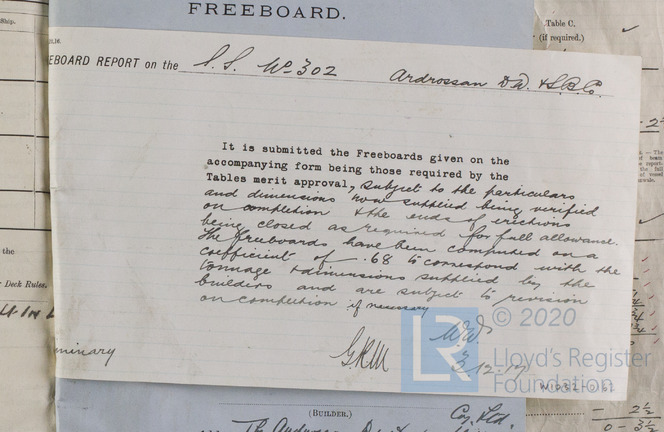 FREEBOARD.
Ship.
Table C.
(if required.)
EBOARD REPORT on the S.S. No 302 Ardrossan D.D. & S.B. Co.
It is submitted the Freeboards given on the
accompanying form being those required by the
Tables merit approval, subject to the particulars
and dimensions now supplied being verified
on completion & the ends of erections
being closed as required for full allowance.
The freeboards have been computed on a
coefficient of .68 to correspond with the
tonnage & dimensions supplied by the
builders and are subject to revision
on completion if necessary
the
Deck Rules.
minary
© 2020
LR
Lloyd's Register
Foundation
(BUILDER.)
Coy. Ltd.